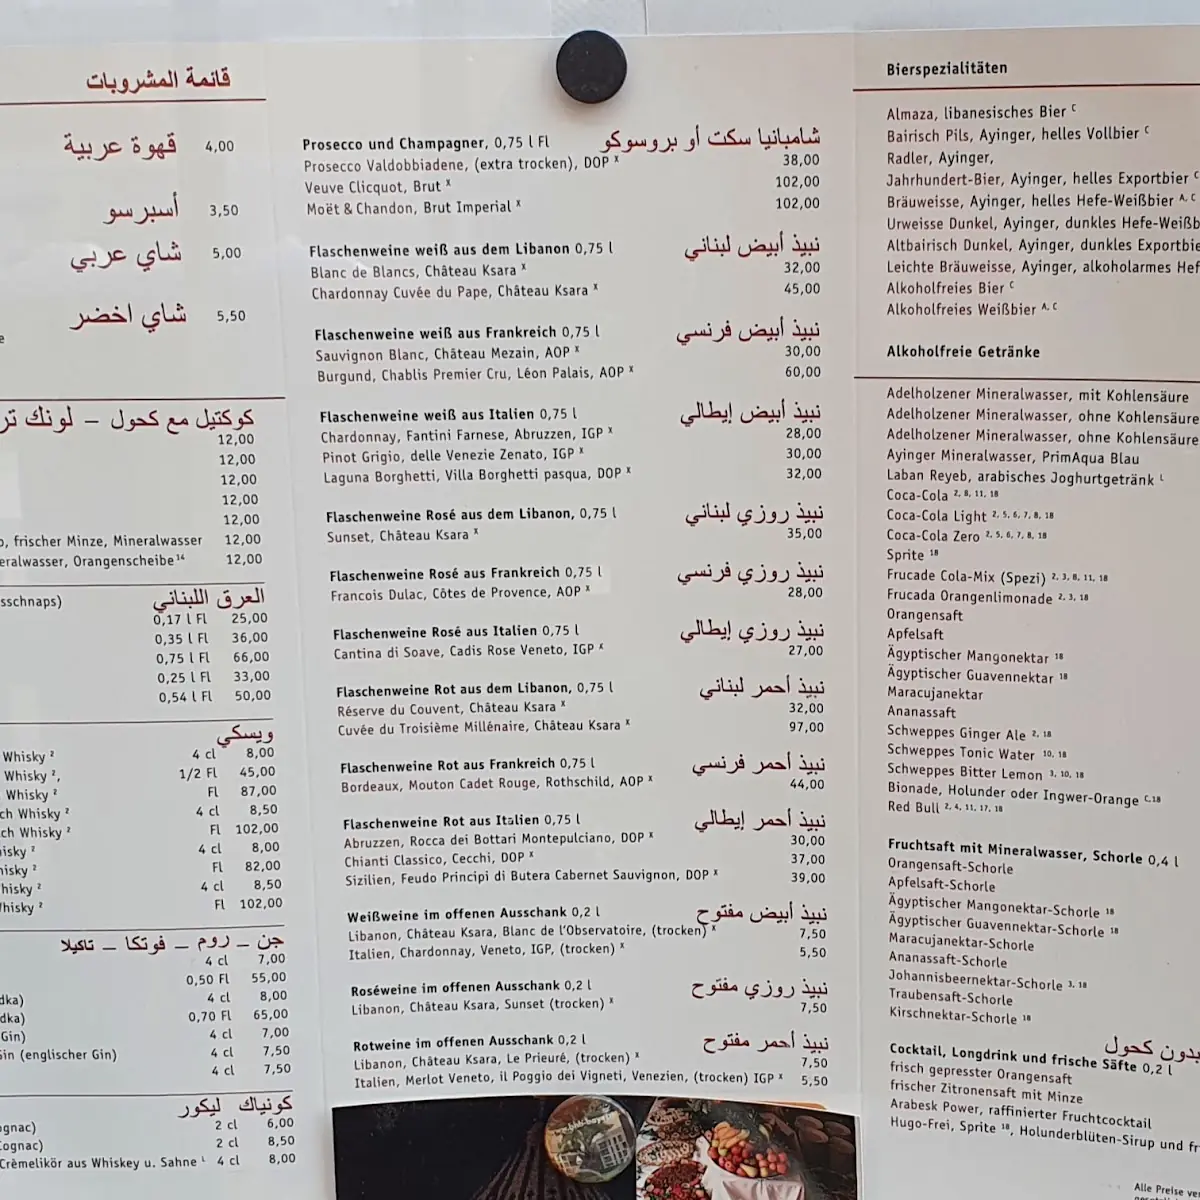 قائمة المشروبات
قهوة عربية 4,00
أسبرسو 3,50
شاي عربي 5,00
شاي اخضر 5,50
كوكتيل مع كحول – لونك
12,00
12,00
12,00
12,00
12,00
frischer Minze, Mineralwasser 12,00
Orangenscheibe ¹⁴ 12,00
العرق اللبناني
0,17 l Fl 25,00
0,35 l Fl 36,00
0,75 l Fl 66,00
0,25 l Fl 33,00
0,54 l Fl 50,00
ويسكي
Whisky ² 4 cl 8,00
Whisky ², 1/2 Fl 45,00
Whisky ² Fl 87,00
Whisky ² 4 cl 8,50
Whisky ² Fl 102,00
4 cl 8,00
Fl 82,00
4 cl 8,50
Fl 102,00
جن – روم – فوتكا – تاكيلا
4 cl 7,00
0,50 Fl 55,00
4 cl 8,00
0,70 Fl 65,00
Gin) 4 cl 7,00
(englischer Gin) 4 cl 7,50
4 cl 7,50
كونياك ليكور
2 cl 6,00
2 cl 8,50
Crèmelikör aus Whiskey u. Sahne ᴸ 4 cl 8,00
Prosecco und Champagner, 0,75 l Fl شامبانيا سكت أو بروسوكو
Prosecco Valdobbiadene, (extra trocken), DOP ˣ 38,00
Veuve Clicquot, Brut ˣ 102,00
Moët & Chandon, Brut Imperial ˣ 102,00
Flaschenweine weiß aus dem Libanon 0,75 l نبيذ أبيض لبناني
Blanc de Blancs, Château Ksara ˣ 32,00
Chardonnay Cuvée du Pape, Château Ksara ˣ 45,00
Flaschenweine weiß aus Frankreich 0,75 l نبيذ أبيض فرنسي
Sauvignon Blanc, Château Mezain, AOP ˣ 30,00
Burgund, Chablis Premier Cru, Léon Palais, AOP ˣ 60,00
Flaschenweine weiß aus Italien 0,75 l نبيذ أبيض إيطالي
Chardonnay, Fantini Farnese, Abruzzen, IGP ˣ 28,00
Pinot Grigio, delle Venezie Zenato, IGP ˣ 30,00
Laguna Borghetti, Villa Borghetti pasqua, DOP ˣ 32,00
Flaschenweine Rosé aus dem Libanon, 0,75 l نبيذ روزي لبناني
Sunset, Château Ksara ˣ 35,00
Flaschenweine Rosé aus Frankreich 0,75 l نبيذ روزي فرنسي
Francois Dulac, Côtes de Provence, AOP ˣ 28,00
Flaschenweine Rosé aus Italien 0,75 l نبيذ روزي إيطالي
Cantina di Soave, Cadis Rose Veneto, IGP ˣ 27,00
Flaschenweine Rot aus dem Libanon, 0,75 l نبيذ أحمر لبناني
Réserve du Couvent, Château Ksara ˣ 32,00
Cuvée du Troisième Millénaire, Château Ksara ˣ 97,00
Flaschenweine Rot aus Frankreich 0,75 l نبيذ أحمر فرنسي
Bordeaux, Mouton Cadet Rouge, Rothschild, AOP ˣ 44,00
Flaschenweine Rot aus Italien 0,75 l نبيذ أحمر إيطالي
Abruzzen, Rocca dei Bottari Montepulciano, DOP ˣ 30,00
Chianti Classico, Cecchi, DOP ˣ 37,00
Sizilien, Feudo Principi di Butera Cabernet Sauvignon, DOP ˣ 39,00
Weißweine im offenen Ausschank 0,2 l نبيذ أبيض مفتوح
Libanon, Château Ksara, Blanc de l’Observatoire, (trocken) ˣ 7,50
Italien, Chardonnay, Veneto, IGP, (trocken) ˣ 5,50
Roséweine im offenen Ausschank 0,2 l نبيذ روزي مفتوح
Libanon, Château Ksara, Sunset (trocken) ˣ 7,50
Rotweine im offenen Ausschank 0,2 l نبيذ أحمر مفتوح
Libanon, Château Ksara, Le Prieuré, (trocken) ˣ 7,50
Italien, Merlot Veneto, il Poggio dei Vigneti, Venezien, (trocken) IGP ˣ 5,50
Bierspezialitäten
Almaza, libanesisches Bier ᶜ
Bairisch Pils, Ayinger, helles Vollbier ᶜ
Radler, Ayinger,
Jahrhundert-Bier, Ayinger, helles Exportbier ᶜ
Bräuweisse, Ayinger, helles Hefe-Weißbier ᴬ, ᶜ
Urweisse Dunkel, Ayinger, dunkles
Altbairisch Dunkel, Ayinger, dunkles
Leichte Bräuweisse, Ayinger, alkoholarmes
Alkoholfreies Bier ᶜ
Alkoholfreies Weißbier ᴬ, ᶜ
Alkoholfreie Getränke
Adelholzener Mineralwasser, mit Kohlensäure
Adelholzener Mineralwasser, ohne Kohlensäure
Adelholzener Mineralwasser, ohne Kohlensäure
Ayinger Mineralwasser, PrimAqua Blau
Laban Reyeb, arabisches Joghurtgetränk ᴸ
Coca-Cola ², ⁸, ¹¹, ¹⁸
Coca-Cola Light ², ⁵, ⁶, ⁷, ⁸, ¹⁸
Coca-Cola Zero ², ⁵, ⁶, ⁷, ⁸, ¹⁸
Sprite ¹⁸
Frucade Cola-Mix (Spezi) ², ³, ⁸, ¹¹, ¹⁸
Frucada Orangenlimonade ², ³, ¹⁸
Orangensaft
Apfelsaft
Ägyptischer Mangonektar ¹⁸
Ägyptischer Guavennektar ¹⁸
Maracujanektar
Ananassaft
Schweppes Ginger Ale ², ¹⁸
Schweppes Tonic Water ¹⁰, ¹⁸
Schweppes Bitter Lemon ³, ¹⁰, ¹⁸
Bionade, Holunder oder Ingwer-Orange ᶜ,¹⁸
Red Bull ², ⁴, ¹¹, ¹⁷, ¹⁸
Fruchtsaft mit Mineralwasser, Schorle 0,4 l
Orangensaft-Schorle
Apfelsaft-Schorle
Ägyptischer Mangonektar-Schorle ¹⁸
Ägyptischer Guavennektar-Schorle ¹⁸
Maracujanektar-Schorle
Ananassaft-Schorle
Johannisbeernektar-Schorle ³, ¹⁸
Traubensaft-Schorle
Kirschnektar-Schorle ¹⁸
بدون كحول
Cocktail, Longdrink und frische Säfte 0,2 l
frisch gepresster Orangensaft
frischer Zitronensaft mit Minze
Arabesk Power, raffinierter Fruchtcocktail
Hugo-Frei, Sprite ¹⁸, Holunderblüten-Sirup und
Alle Preise